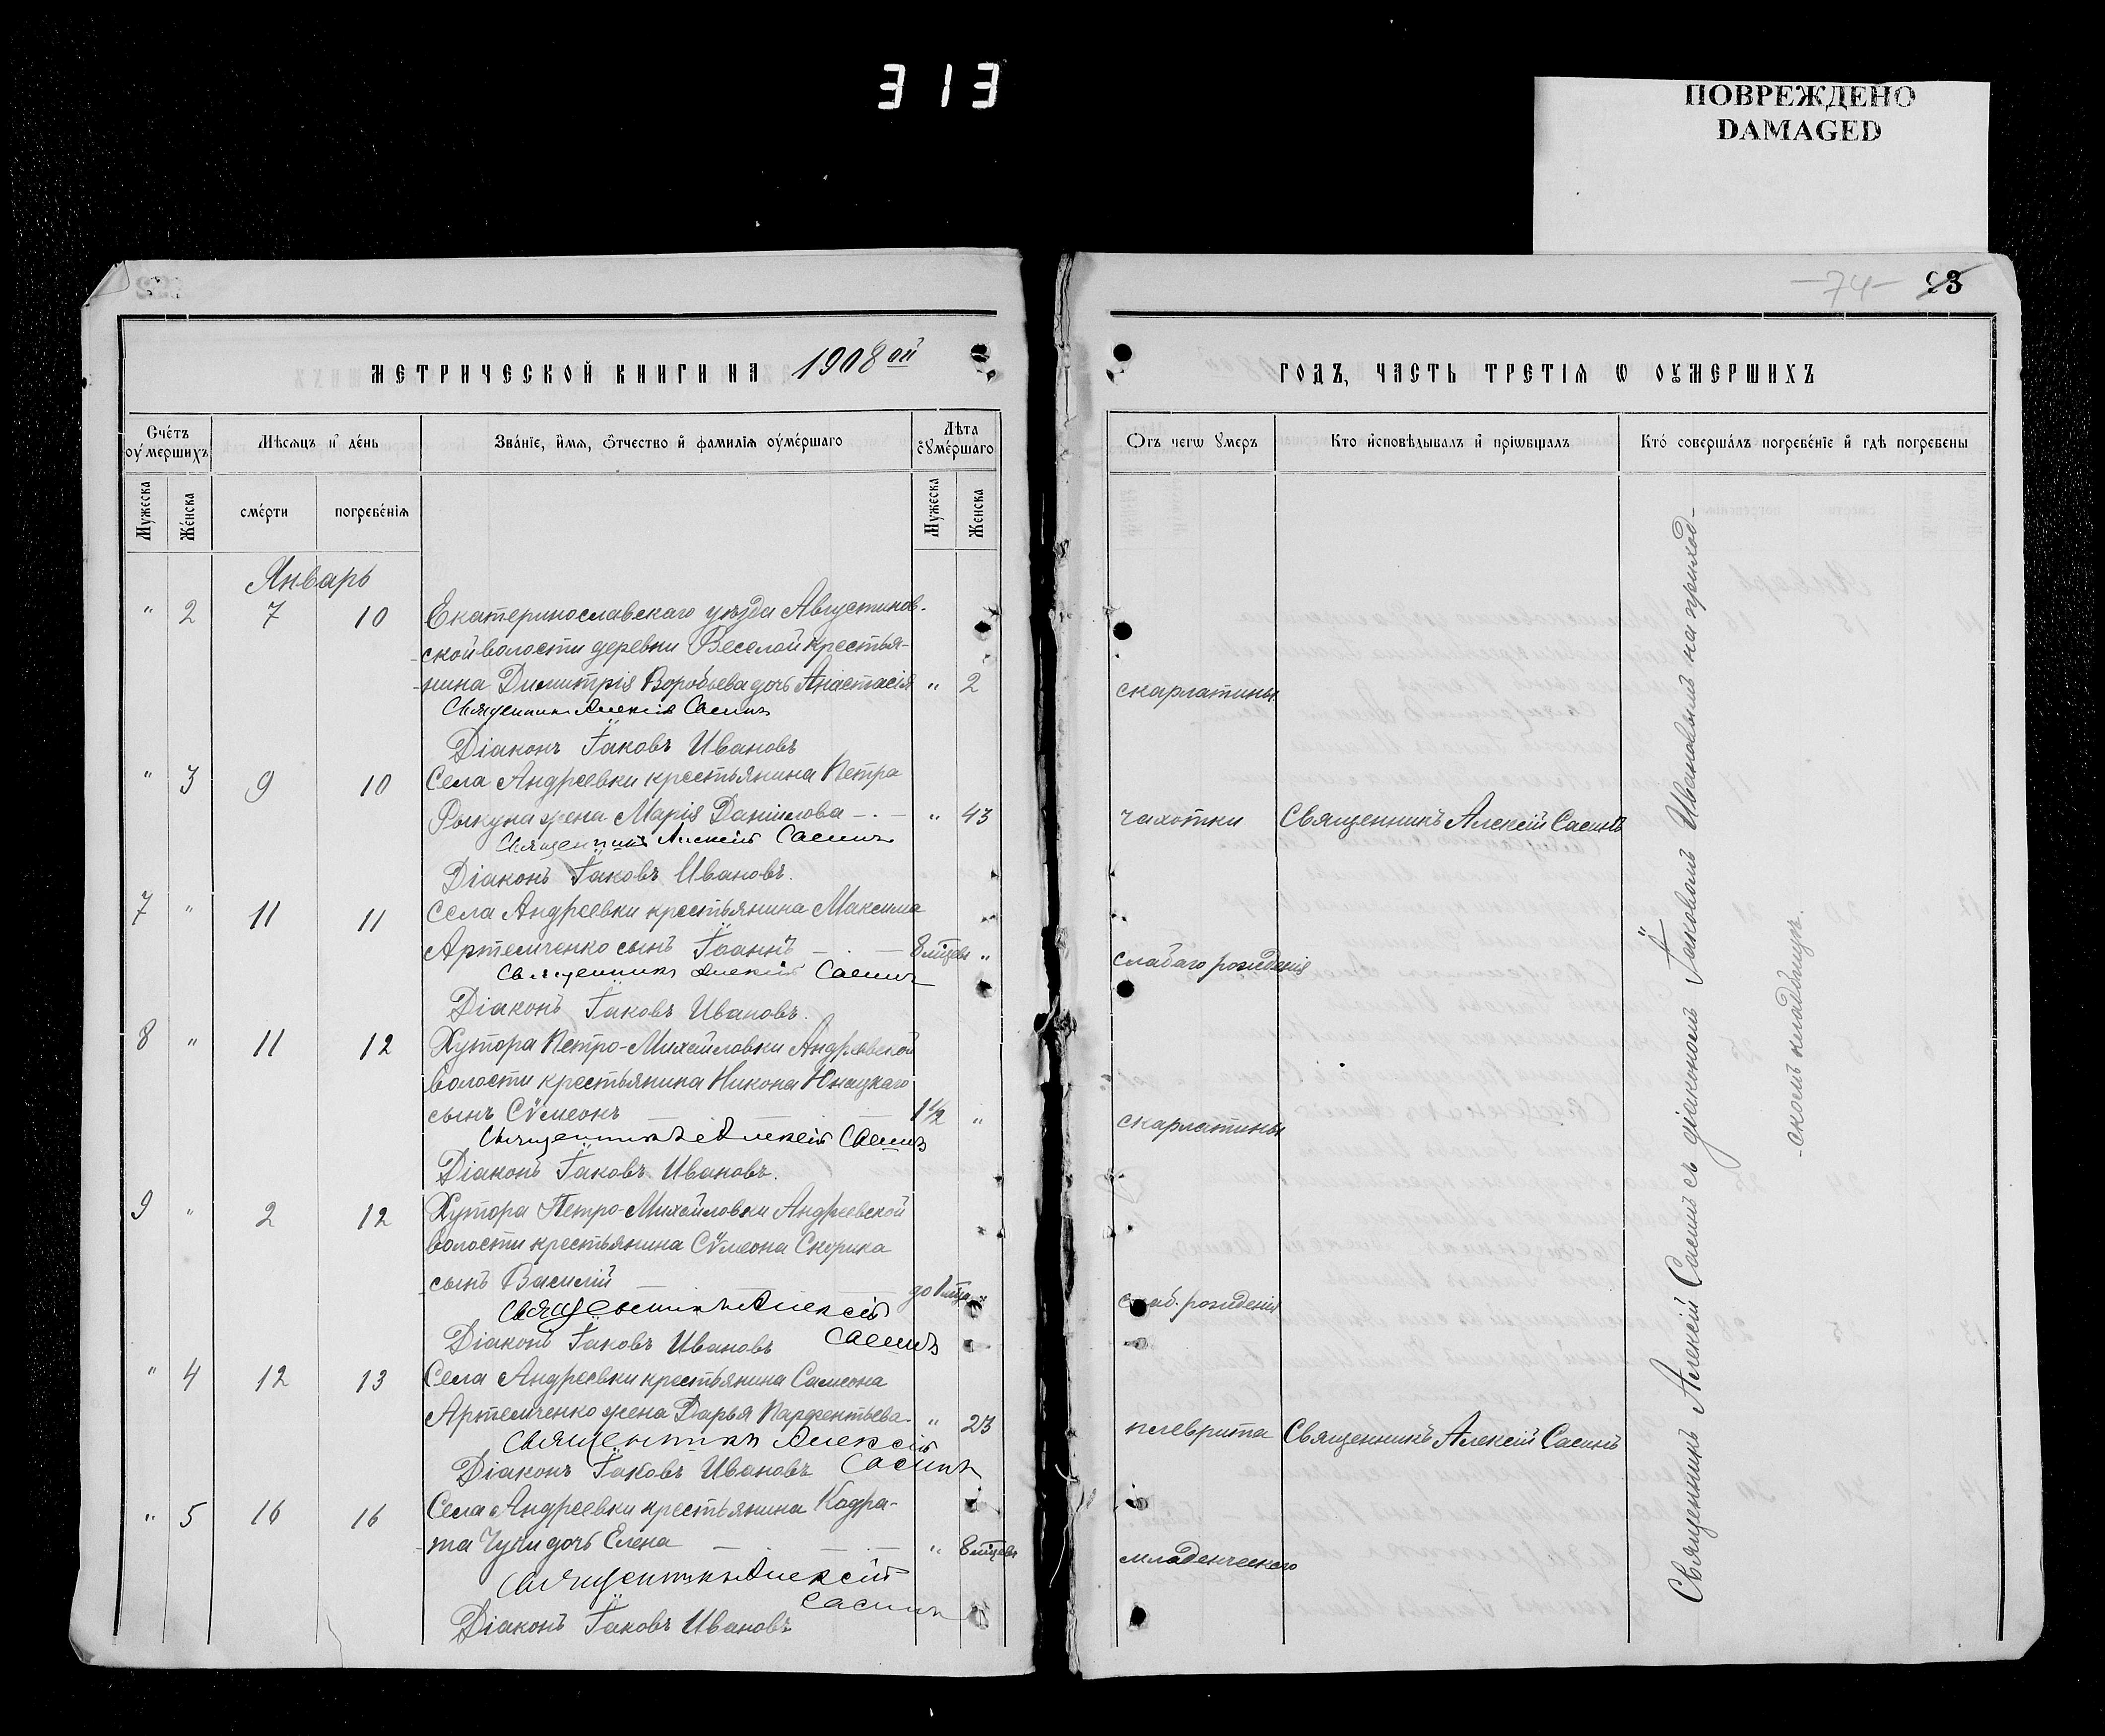 313
ПОВРЕЖДЕНО
DAMAGED
-74-
МЕТРИЧЕСКОЙ КНИГИ НА 1908ой
ГОДЪ, ЧАСТЬ ТРЕТІЯ Ѡ ОУМЕРШИХЪ
Счетъ оумершихъ
Мѣсяцъ и день
Званіе, имя, отчество и фамилія оумершаго
Лѣта оумершаго
Отъ чегѡ умеръ
Кто исповѣдывалъ и пріѡбщалъ
Кто совершалъ погребеніе и гдѣ погребены
Мужеска
Женска
смерти
погребенія
Мужеска
Женска
Январь
" 2 7 10 Екатеринославскаго уѣзда Августинов-
-ской волости деревни Веселой крестья-
-нина Димитрія Воробьева дочь Анастасія " 2 скарлатины
Священникъ Алексій Сасинъ
Діаконъ Іаковъ Ивановъ
" 3 9 10 Села Андреевки крестьянина Петра
жена Марія Данилова " 43 чахотки Священникъ Алексій Сасинъ
Священникъ Алексій Сасинъ
Діаконъ Іаковъ Ивановъ.
7 " 11 11 Села Андреевки крестьянина Максима
Артемченко сынъ Іоаннъ 8 мцевъ " слабаго рожденія
Священникъ Алексій Сасинъ
Діаконъ Іаковъ Ивановъ.
8 " 11 12 Хутора Петро-Михайловки Андреевской
волости крестьянина Никона
сынъ Сѵмеонъ 1½ " скарлатины
Священникъ Алексій Сасинъ
Діаконъ Іаковъ Ивановъ.
9 " 2 12 Хутора Петро-Михайловки Андреевской
волости крестьянина Сѵмеона Скорика
сынъ Василій до 1 мца " слаб. рожденія
Священникъ Алексій
Сасинъ
Діаконъ Іаковъ Ивановъ
" 4 12 13 Села Андреевки крестьянина Самсона
Артемченко жена Дарья Парфентьева " 23 плеврита Священникъ Алексій Сасинъ
Священникъ Алексій
Сасинъ
Діаконъ Іаковъ Ивановъ
" 5 16 16 Села Андреевки крестьянина Кодра-
-та дочь Елена " 8 мцевъ младенческаго
Священникъ Алексій
Сасинъ
Діаконъ Іаковъ Ивановъ
Священникъ Алексій Сасинъ съ діакономъ Іаковомъ Ивановымъ на приход-
-скомъ кладбищѣ.